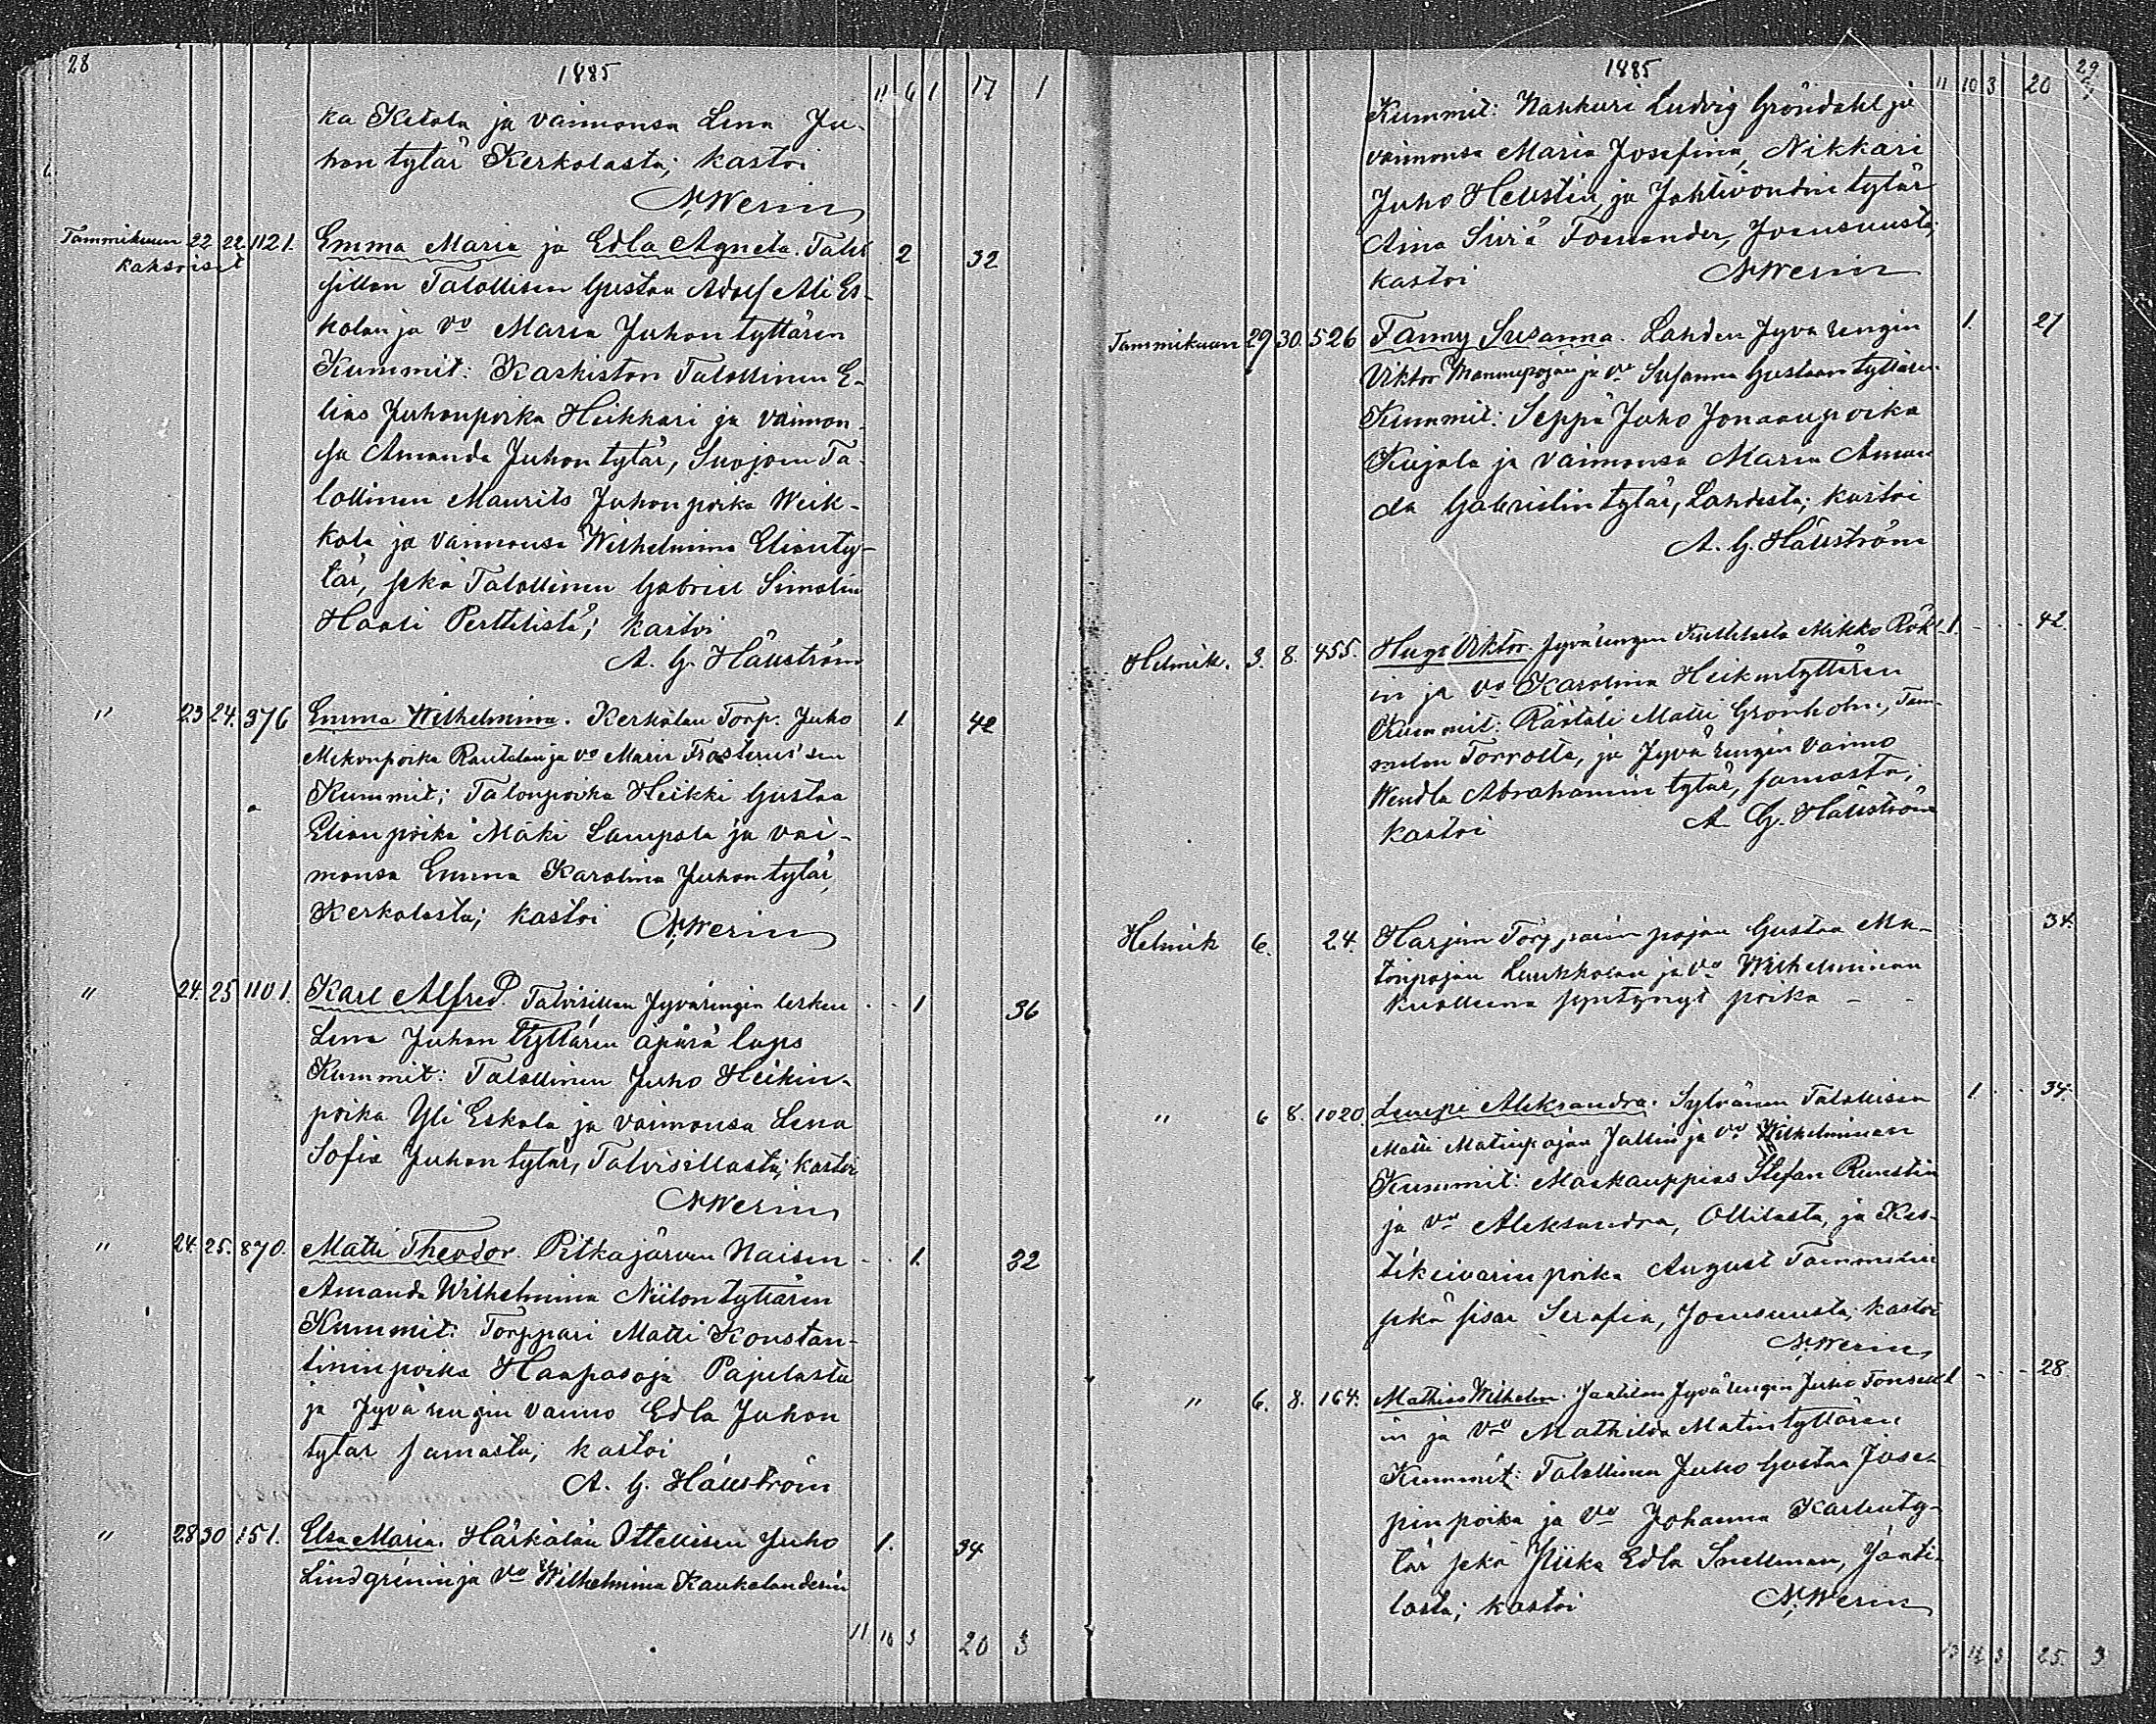 28
1885
11 6 1 17 1
ka Ketola ja vaimonsa Lena Ju-
hon tytär Kerkolasta; kastoi
N. Werin
Tammikuun 22 22. 1121. Emma Maria ja Edla Agneta. Talvi 2 32
kaksoiset
sillan Talollisen Gustaa Adolf Ali Es-
kolan ja vo Maria Juhon tyttären
Kummit: Kaskiston Talollinen E-
lias Juhonpoika Heikkari ja vaimon-
sa Amanda Juhon tytär, Suojoen Ta-
lollinen Maurits Juhonpoika Weik-
kola ja vaimonsa Wilhelmina Elianty-
tär, sekä Talollinen Gabriel Simolin
Hanti Perttilistä; kastoi
A. G. Hällström
" 23 24. 376 Emma Wilhelmina. Kerkolan Torp. Juho 1. 42
Mikonpoika Rautalan ja vo Maria Frosterus'sen
Kummit; Talonpoika Heikki Gustaa
Elian poika Mäki Lampola ja vai-
monsa Emma Karolina Juhon tytär,
Kerkolasta; kastoi N. Werin
" 24. 25 1101. Karl Alfred. Talvisillan Jyvärengin lesken 1 36
Lena Juhon Tyttären äpärä laps
Kummit: Talollinen Juho Heikin-
poika Yli Eskola ja vaimonsa Lena
Sofia Juhon tytär, Talvisillasta; kastoi
N. Werin
" 24. 25. 870. Matti Theodor. Pitkäjärven Naisen 1. 32
Amanda Wilhelmina Niilon tyttären
Kummit: Torppari Matti Konstan-
tininpoika Haapasoja Pajulasta
ja Jyvä rengin vaimo Edla Juhon
tytär samasta; kastoi
A. G. Hällström
" 28 30 151. Elsa Maria. Härkälän Ottellisen Juho 1. 34
Lindgrenin ja vo Wilhelmina Kaukolanderin
11. 10 3 20 3
1885
11 10 3 20 29
Kummit: Nahkuri Ludvig Gröndahl ja
vaimonsa Maria Josefina, Nikkari
Juho Hellstén, ja Jahtivoudin tytär
Aina Siviä Fornander, Joensuusta;
kastoi N. Werin
Tammikuun 29 30. 526 Fanny Susanna. Lahden Jyvä rengin 1. 27
Viktor Manuupojan ja vo Susanna Gustaan tyttären
Kummit: Seppä Juho Jonaanpoika
Kujala ja vaimonsa Maria Aman
da Gabrielin tytär, Lahdesta; kastoi
A. G. Hällström
Helmik. 3. 8. 455. Hugo Viktor. Jyvärengin Mikko Rök 1. 42.
in ja vo Karolina Heikintyttären
Kummit: Räätäli Matti Grönholm, Tam-
melan Torrolta, ja Jyvä rengin vaimo
Wendla Abrahamin tytär, samasta;
kastoi A. G. Hällström
Helmik 6. 24. Harjun Torpparin pojan Gustaa An- 34.
tonpojan Luukkolan ja vo Wilhelminan
Kuolleena syntynyt poika –
" 6 8. 1020. Lempi Aleksandra. Sylvänän Talollisen 1 34.
Matti Matinpojan Jallin ja vo Wilhelminan
Kummit: Maakauppias Stefan Runstin
ja vo Aleksandra, Ollilasta, ja Kes-
tikievarin poika August Tammelin
sekä sisar Serafia, Joensuusta; kastoi
N. Werin
" 6. 8. 164. Mathias Wilhelm. Jantilan Jyvärengin Juho Tonsell 1 28
in ja vo Mathilda Matin tyttären
Kummit: Talollinen Juho Gustaa Jose-
pin poika ja vo Johanna Karlinty-
tär sekä Piika Edla Snellman, Jänti-
lästä; kastoi N. Werin
13 12 3 25. 3